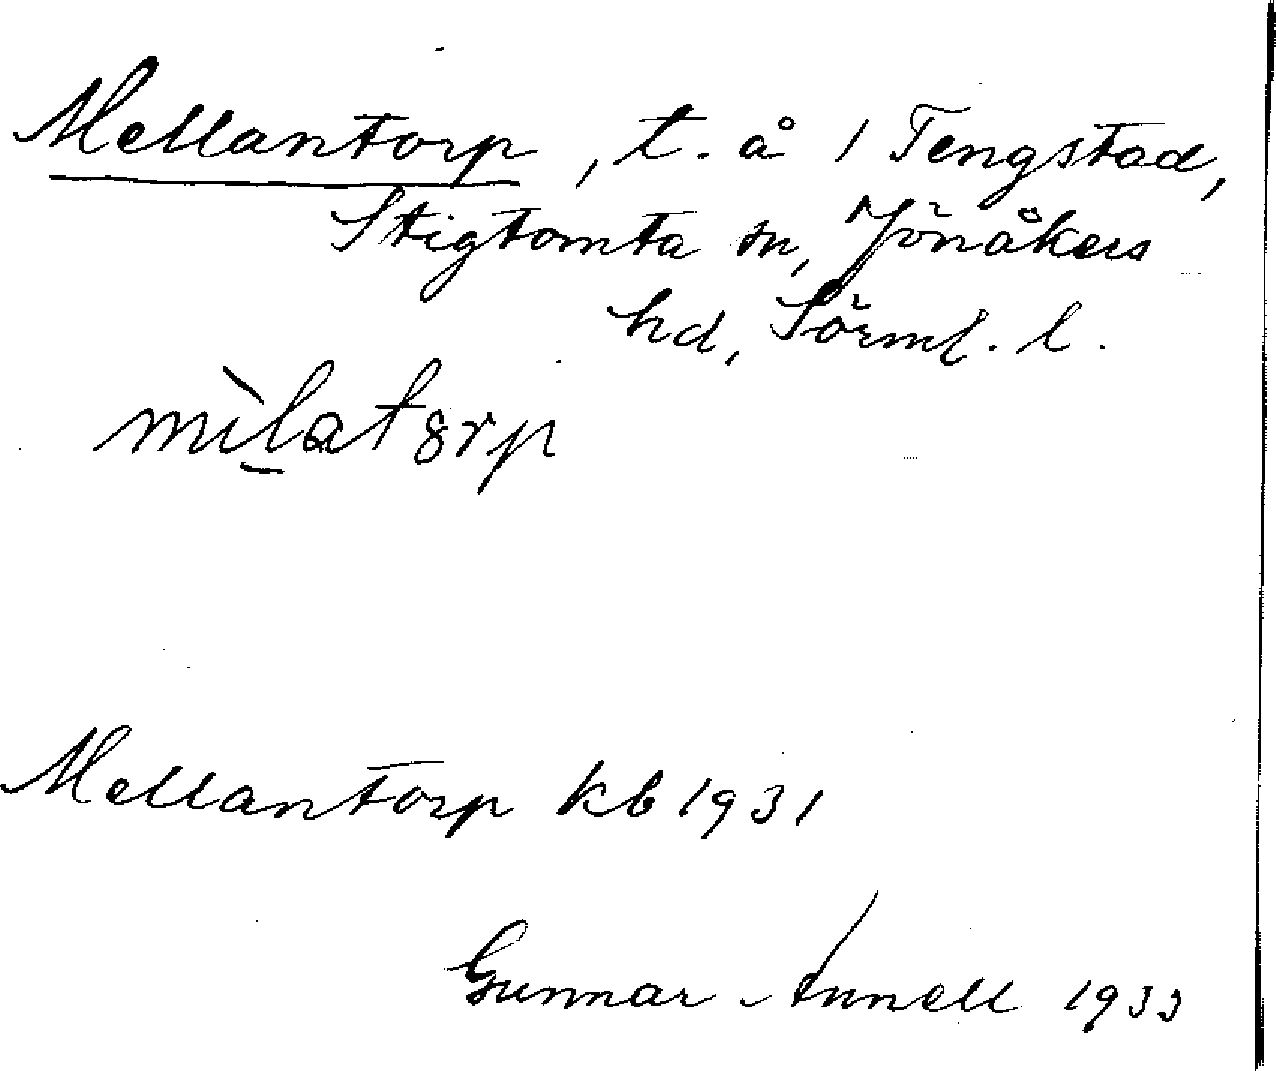 Mellantorp, t. å 1 Tengstad,
Stigtomta sn, Jönåkers
hd, Sörml. l.
mìlatɜrp
Mellantorp kb 1931
Gunnar Annell 1933